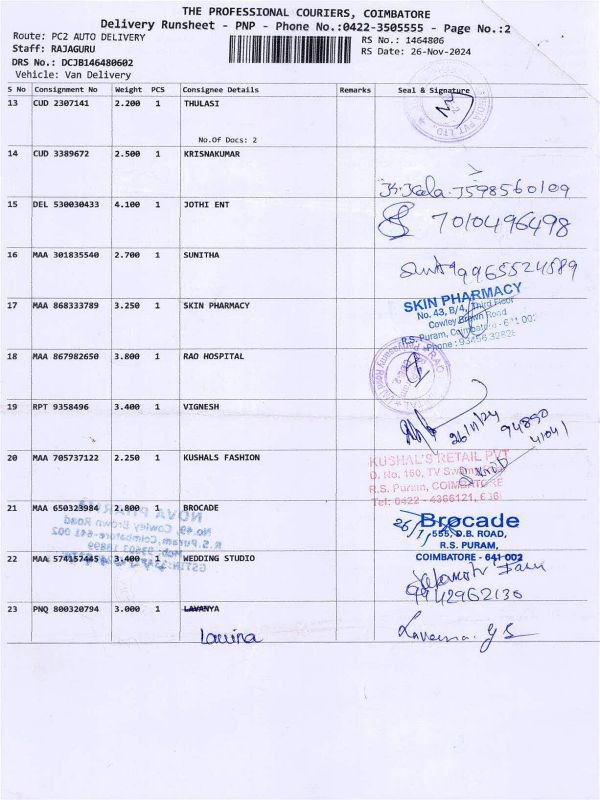 THE PROFESSIONAL COURIERS, COIMBATORE
Delivery Runsheet - PNP - Phone No.:0422-3505555 - Page No.:2
Route: PC2 AUTO DELIVERY
RS No.: 1464806
Staff: RAJAGURU
RS Date: 26-Nov-2024
DRS No.: DCJB146480602
Vehicle: Van Delivery
S No Consignment No Weight PCS Consignee Details Remarks Seal & Signature
13 CUD 2307141 2.200 1 THULASI
No.Of Docs: 2
14 CUD 3389672 2.500 1 KRISNAKUMAR
K.Kala. 7598560109
15 DEL 530030433 4.100 1 JOTHI ENT
7010496498
16 MAA 301835540 2.700 1 SUNITHA
9965524589
17 MAA 868333789 3.250 1 SKIN PHARMACY
SKIN PHARMACY
No. 43, B/4, Third Floor
Cowley Brown Road
R.S. Puram, Coimbatore - 641 002
Phone :
18 MAA 867982650 3.800 1 RAO HOSPITAL
19 RPT 9358496 3.400 1 VIGNESH
26/11/24
94890
41041
20 MAA 705737122 2.250 1 KUSHALS FASHION
KUSHAL'S RETAIL PVT
D. No. 160, TV
R.S. Puram, COIMBATORE
Tel: 0422 - 4366121,
21 MAA 650323984 2.800 1 BROCADE
NOVA PHARMA
No. 49, Cowley Brown Road
R.S. Puram, Coimbatore-641 002
Brocade
555, D.B. ROAD,
R.S. PURAM,
COIMBATORE - 641 002
22 MAA 574157445 3.400 1 WEDDING STUDIO
9942962130
23 PNQ 800320794 3.000 1 LAVANYA